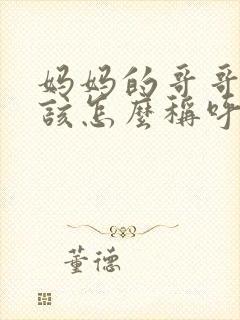 妈妈的哥哥
该怎麽稱呼
董德